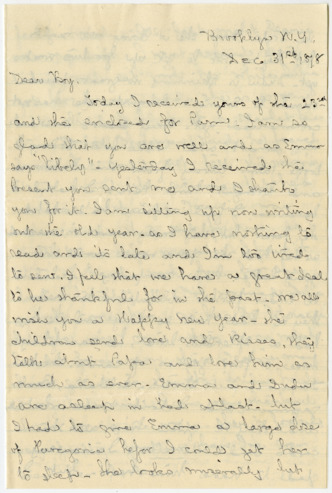 Brooklyn N.Y.
Dec 31st 1878
Dear Roy.
Today I received yours of the 23rd
and the enclosed for Parm. I am so
glad that you are well and as Emma
says "
". Yesterday I received the
Present you sent me and I thank
you for it. I am sitting up now writing
out the old year. as I have nothing to
read and its late and I'm too tired
to sew. I feel that we have a great deal
to be thankful for in the past. we all
wish you a Happy New Year - the
children send love and Kisses, they
talk about Papa and love him as
much as ever. Emma and
are asleep in bed at last. but
I had to give Emma a large dose
of Paregoric befor I could get her
to sleep - She looks miserably but